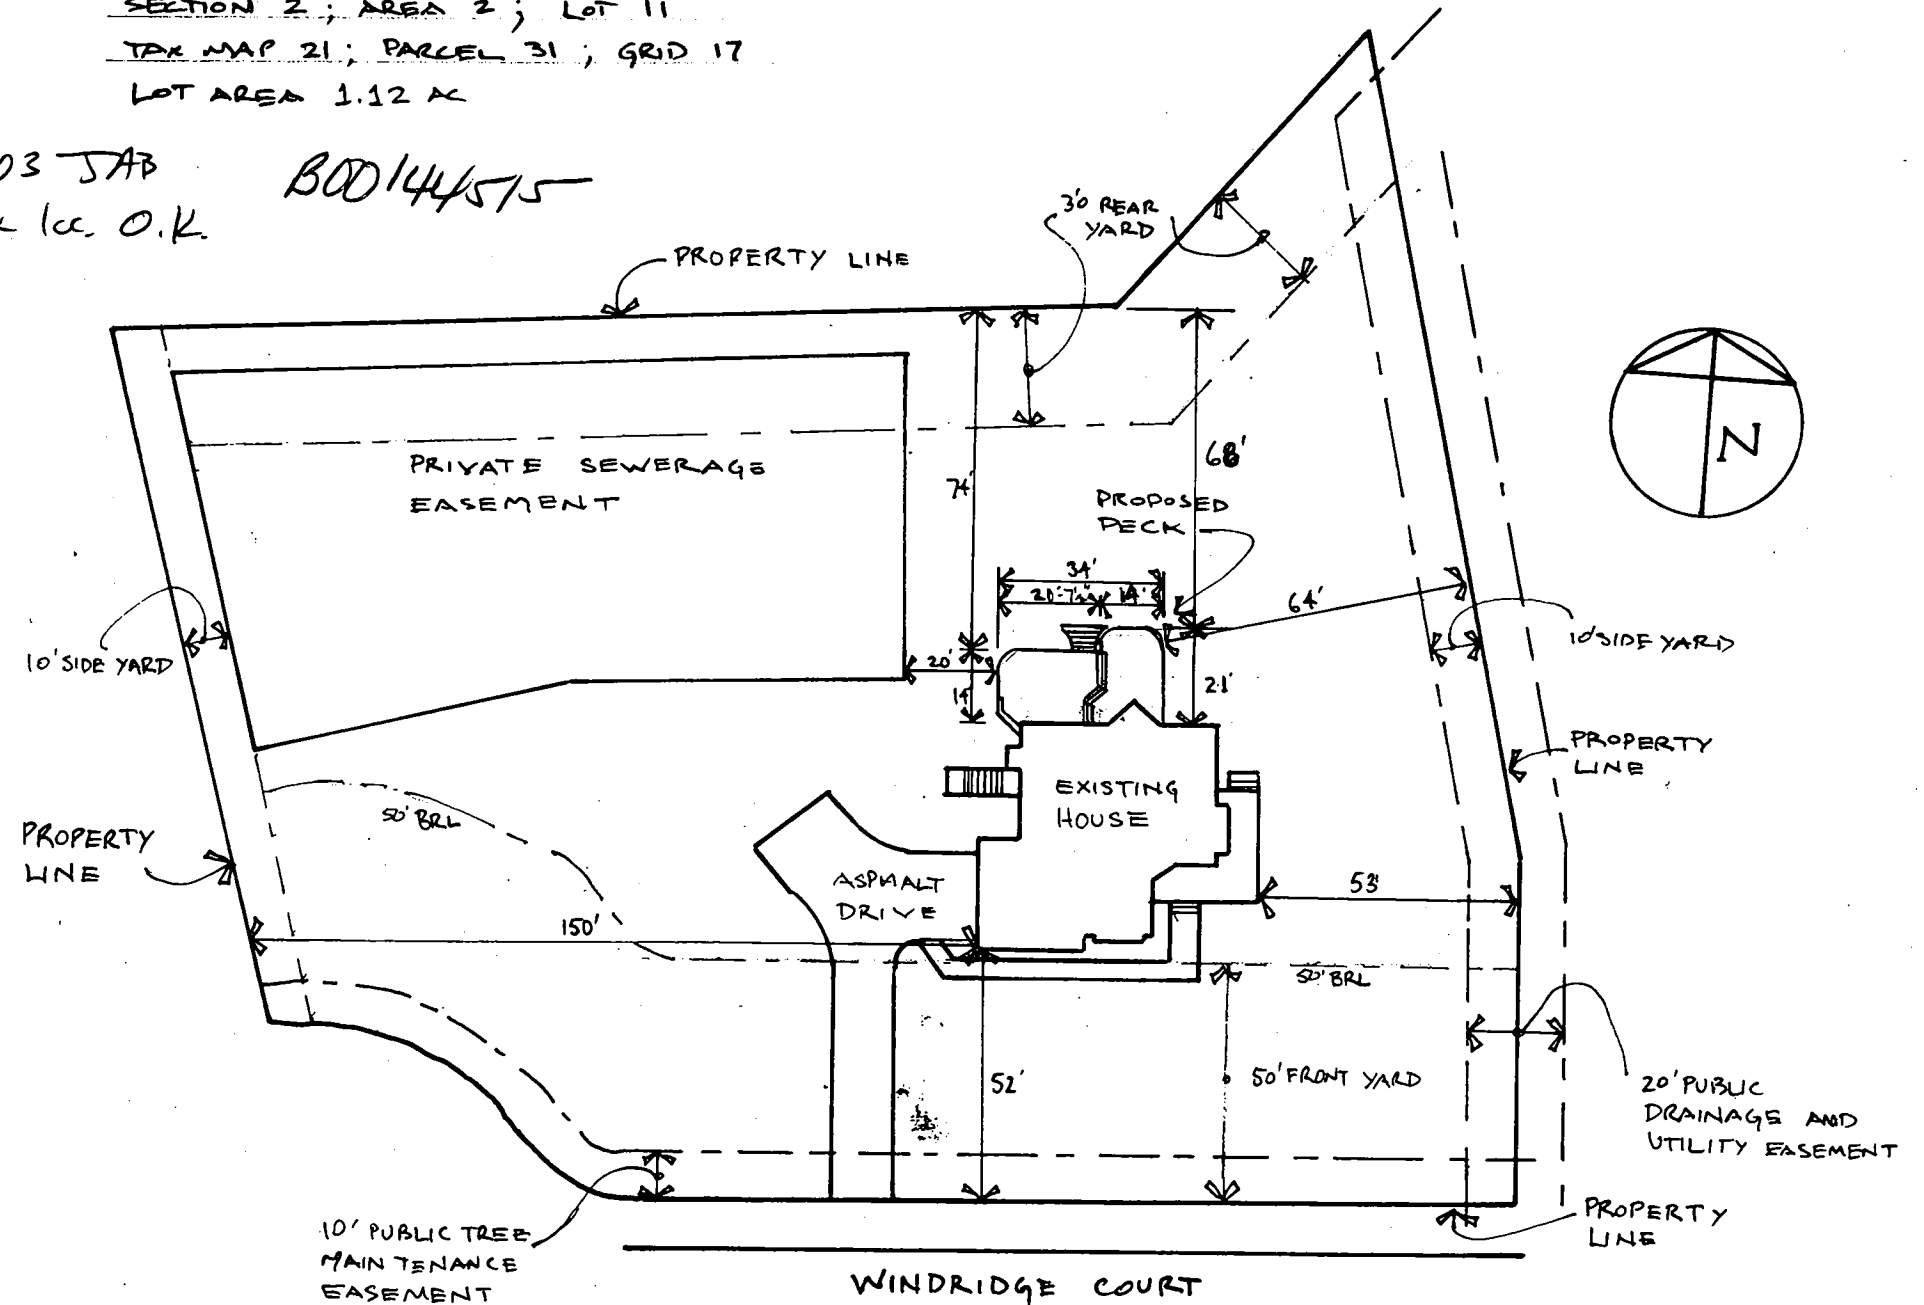 SECTION 2 ; AREA 2 ; LOT 11
TAX MAP 21 ; PARCEL 31 ; GRID 17
LOT AREA 1.12 AC
03 JAB
B00144515
O.K.
30' REAR
YARD
PROPERTY LINE
PRIVATE SEWERAGE
EASEMENT
74'
68'
PROPOSED
DECK
N
34'
20'-7½"
14'
64'
10' SIDE YARD
10' SIDE YARD
20'
14'
21'
PROPERTY
LINE
EXISTING
HOUSE
50' BRL
PROPERTY
LINE
ASPHALT
DRIVE
53'
150'
50' BRL
52'
50' FRONT YARD
20' PUBLIC
DRAINAGE AND
UTILITY EASEMENT
10' PUBLIC TREE
MAINTENANCE
EASEMENT
PROPERTY
LINE
WINDRIDGE COURT